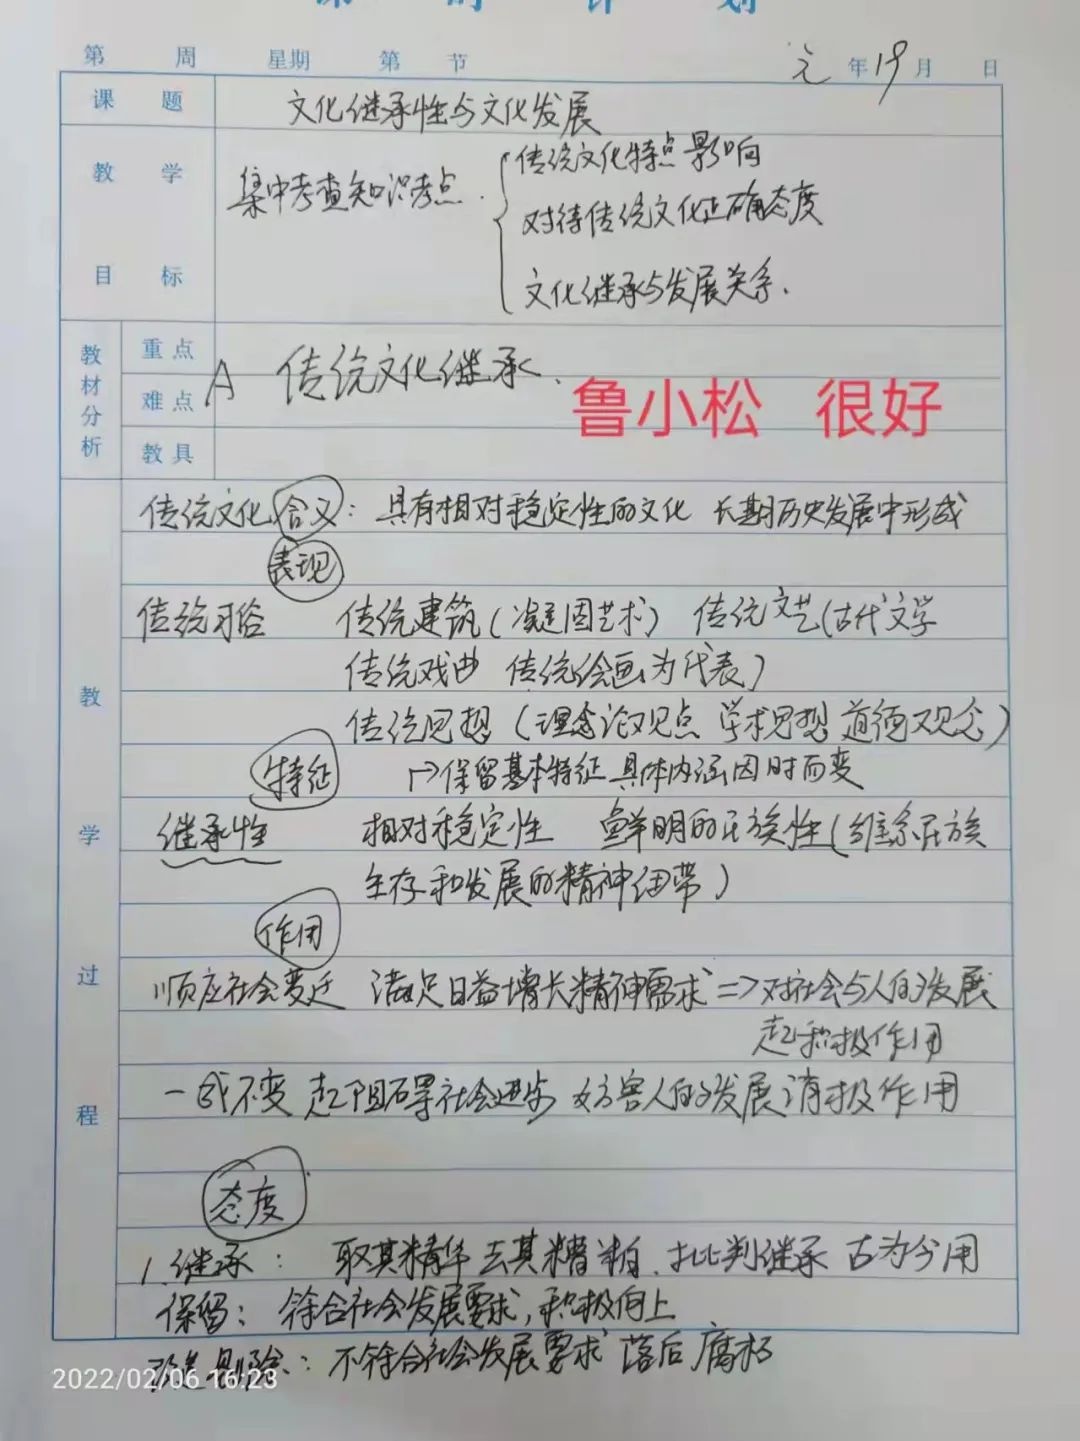 课时计划
第 周 星期 第 节 元年19月 日
课题 文化继承性与文化发展
教学目标 集中考查知识考点
传统文化特点影响
对待传统文化正确态度
文化继承与发展关系.
教材分析
重点
难点
教具
A 传统文化继承.
鲁小松 很好
教学过程
传统文化含义: 具有相对稳定性的文化 长期历史发展中形成
表现
传统习俗 传统建筑(凝固艺术) 传统文艺(古代文学
传统戏曲 传统绘画为代表)
传统思想 (理念论观点 学术思想 道德观念)
特征 →保留基本特征 具体内涵因时而变
继承性 相对稳定性 鲜明的民族性(维系民族
生存和发展的精神纽带)
作用
顺应社会变迁 满足日益增长精神需求 => 对社会与人的发展
起积极作用
一成不变 起阻碍社会进步 妨害人的发展消极作用
态度
1. 继承: 取其精华 去其糟粕. 批判继承 古为今用
保留: 符合社会发展要求, 积极向上
改造剔除: 不符合社会发展要求 落后 腐朽
2022/02/06 16:23